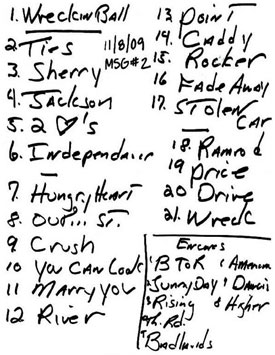 1. Wreckin Ball
2. Ties
11/8/09
MSG#2
3. Sherry
4. Jackson
5. 2 ♡'s
6. Independa...
7. Hungry Heart
8. Out... St.
9 Crush
10 You Can Look
11 Marry you
12 River
13. Point
14. Caddy
15. Rocker
16 Fade Away
17. Stolen
Car
18. Ramrod
19 Price
20 Drive
21. Wreck
Encores
1 BToR
2 Sunny Day
3 Rising
4 Th. Rd.
5 Badlands
6 American
7 Dancin
8 Higher